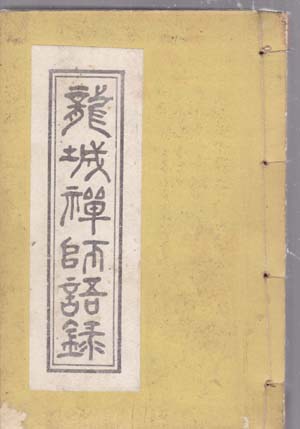 龍城禪師語錄